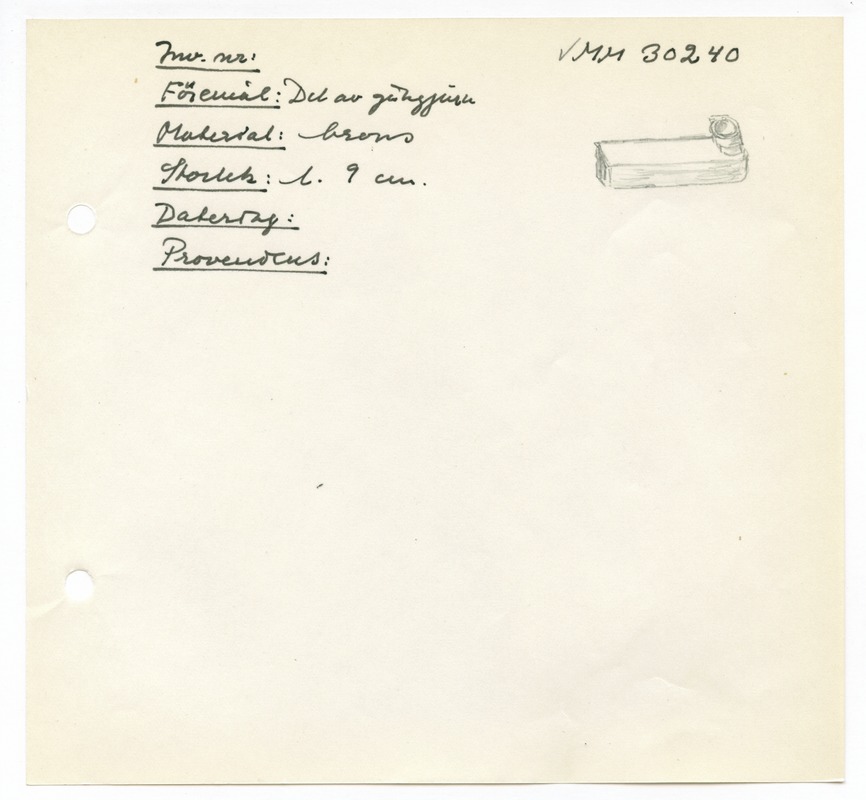 Inv. nr: MM 30240
Föremål: Del av gångjärn
Material: brons
Storlek: l. 9 cm.
Datering:
Proveniens: